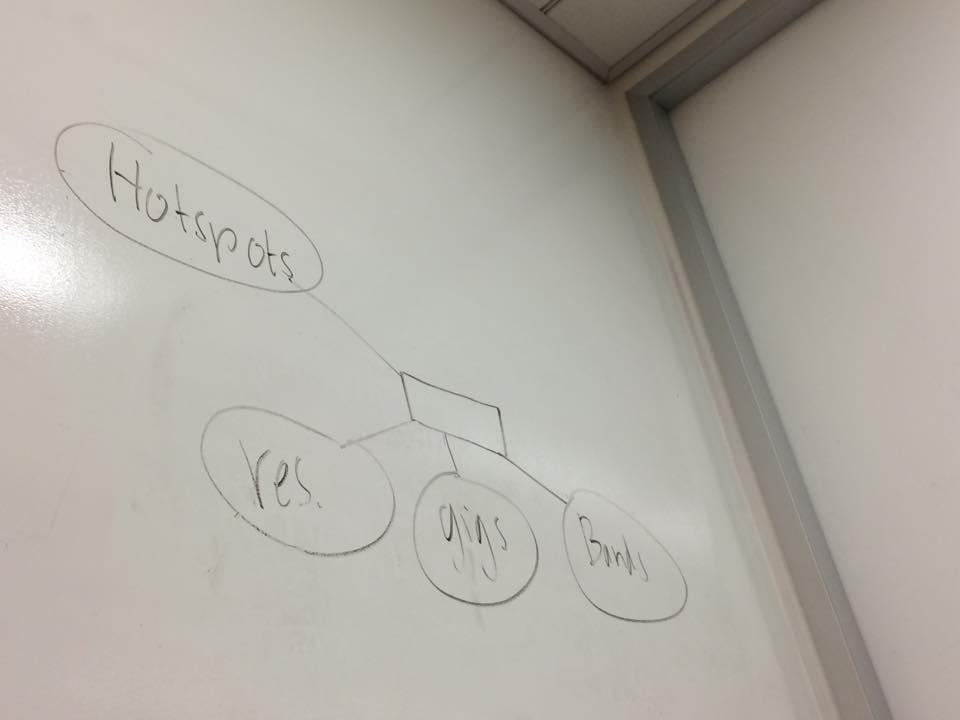 Hotspots
res.
gigs
Bands